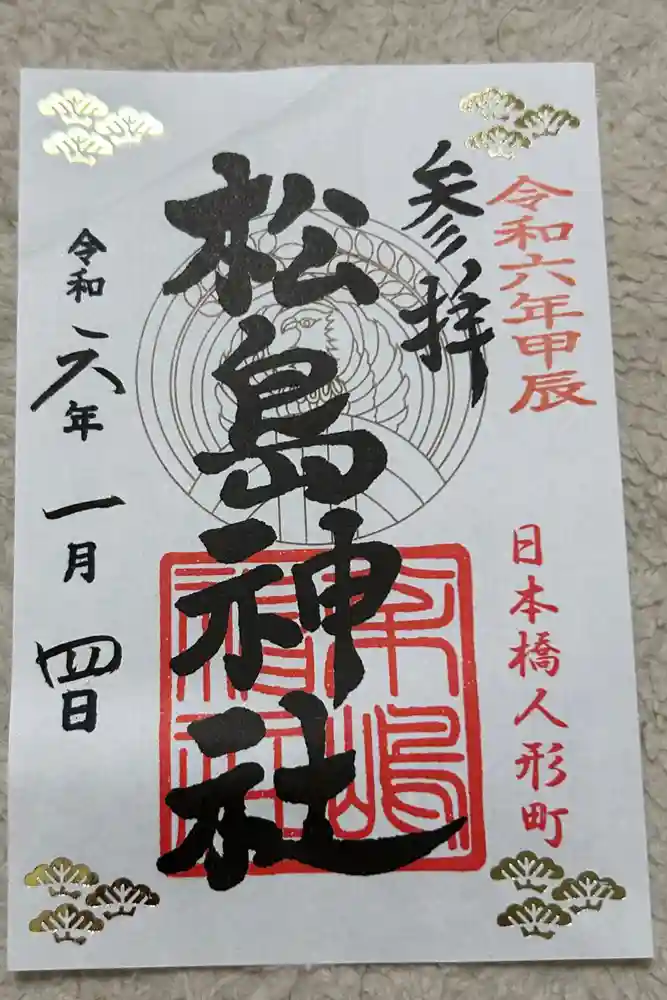 令和六年甲辰
日本橋人形町
参拝
松島神社
松嶋神社
令和六年
一月
四日